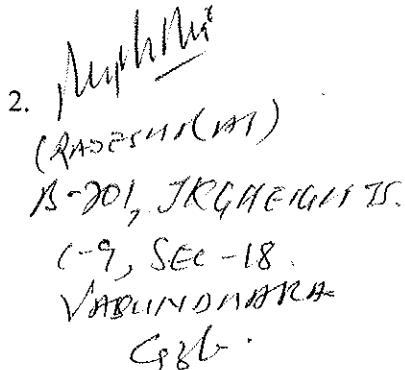 2.
(RAJESH RAI)
B-201, JKG HEIGHTS.
C-9, SEC-18.
VASUNDHARA
Gzb.